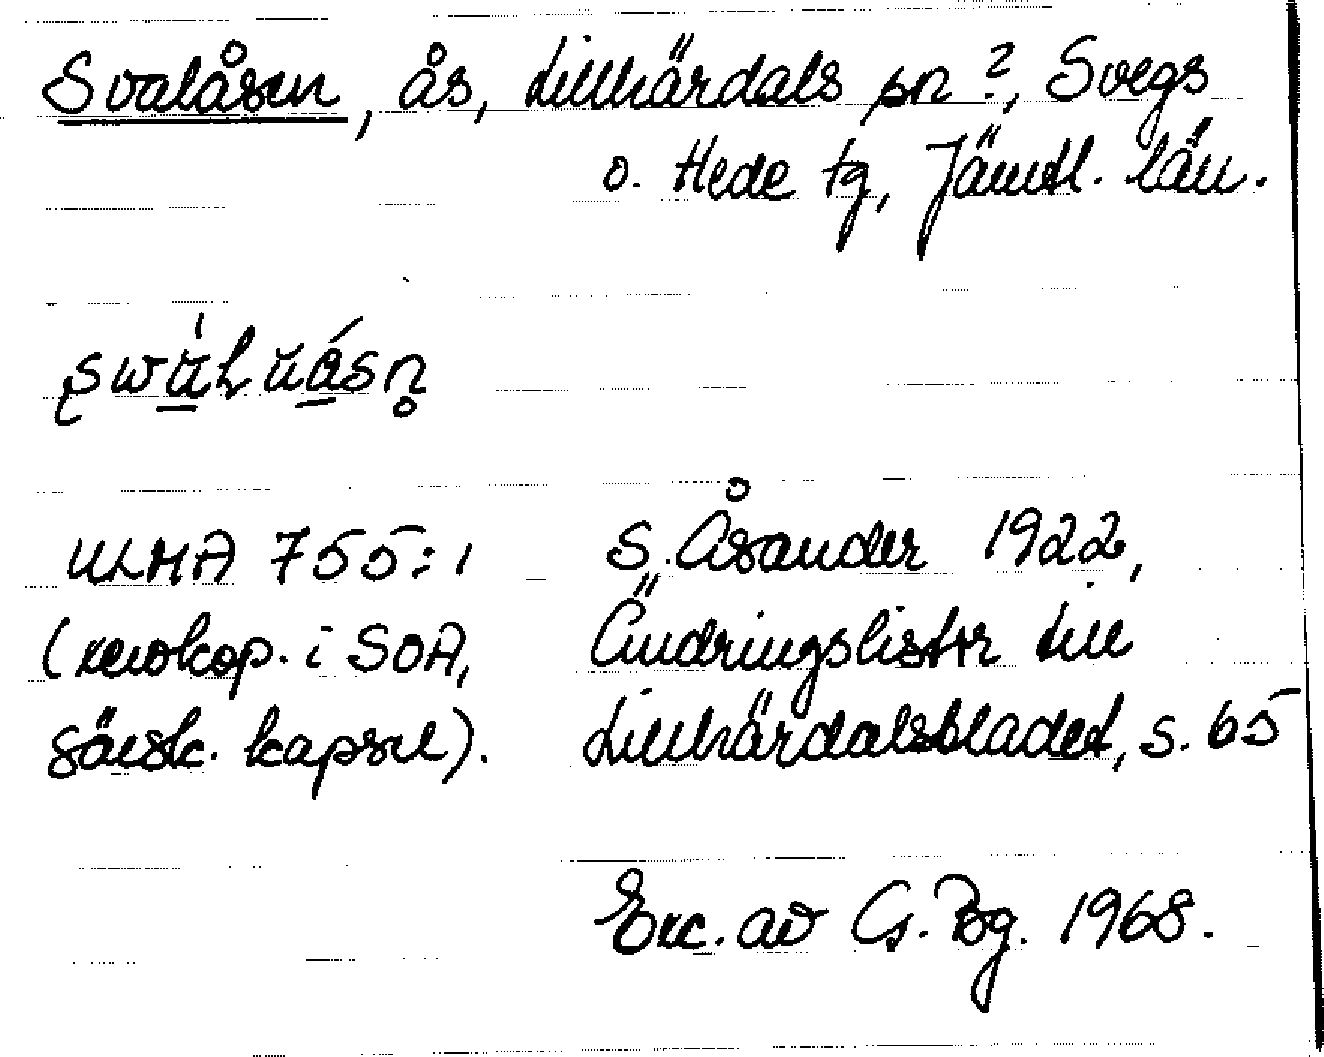 Svalåsen, ås, Lillhärdals sn?, Svegs
o. Hede tg, Jämtl. län.
ULMA 755:1 S. Åsander 1922,
(xerokop. i SOA, Ändringslistor till
särsk. kapsel). Lillhärdalsbladet, s. 65
Exc. av G. Bg. 1968.